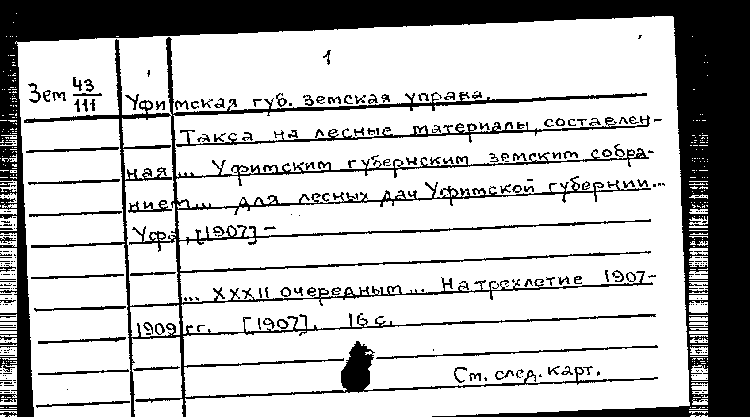 1
Зем 43/111
Уфимская губ. земская управа.
Такса на лесные материалы, составлен-
ная ... Уфимским губернским земским собра-
нием ... для лесных дач Уфимской губернии ...
Уфа, [1907] –
... XXXII очередным ... На трехлетие 1907-
1909 гг. [1907]. 16 с.
См. след. карт.